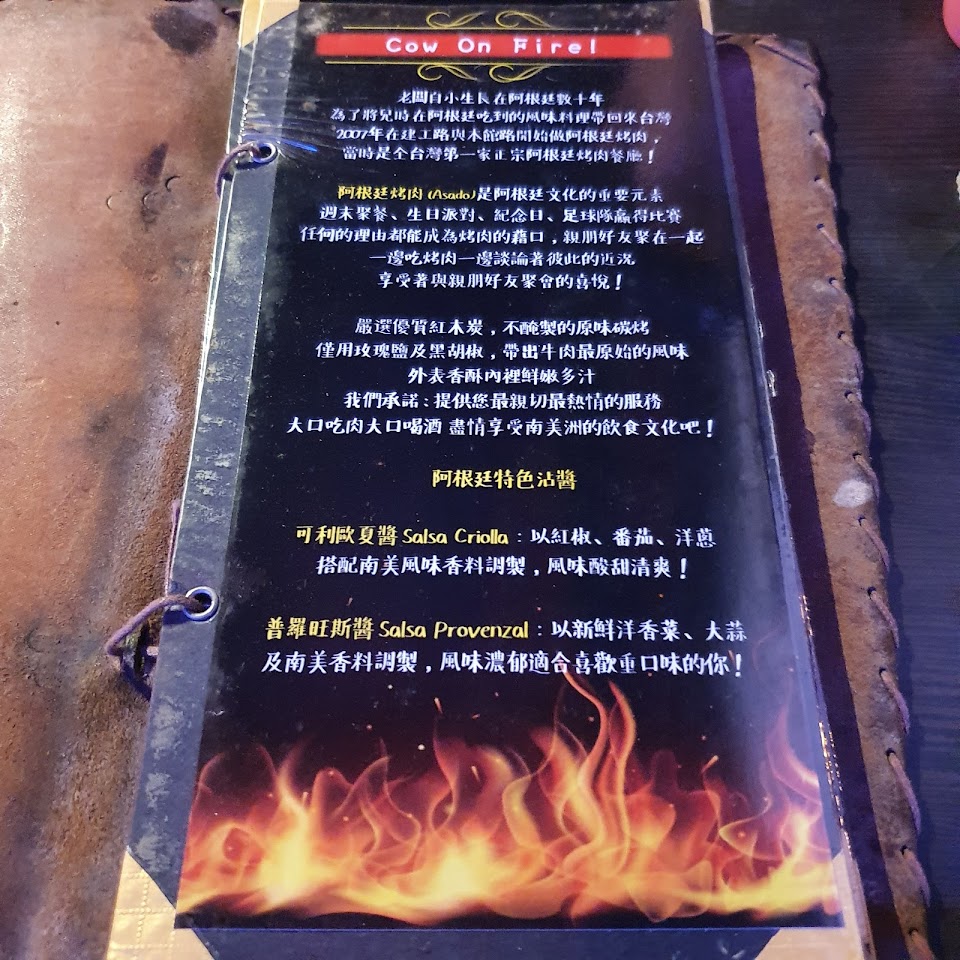 Cow On Fire!
老闆自小生長在阿根廷數十年
為了將兒時在阿根廷吃到的風味料理帶回來台灣
2007年在建工路與本館路開始做阿根廷烤肉，
當時是全台灣第一家正宗阿根廷烤肉餐廳！
阿根廷烤肉(Asado)是阿根廷文化的重要元素
週末聚餐、生日派對、紀念日、足球隊贏得比賽
任何的理由都能成為烤肉的藉口，親朋好友聚在一起
一邊吃烤肉一邊談論著彼此的近況
享受著與親朋好友聚會的喜悅！
嚴選優質紅木炭，不醃製的原味碳烤
僅用玫瑰鹽及黑胡椒，帶出牛肉最原始的風味
外表香酥內裡鮮嫩多汁
我們承諾：提供您最親切最熱情的服務
大口吃肉大口喝酒 盡情享受南美洲的飲食文化吧！
阿根廷特色沾醬
可利歐夏醬 Salsa Criolla：以紅椒、番茄、洋蔥
搭配南美風味香料調製，風味酸甜清爽！
普羅旺斯醬 Salsa Provenzal：以新鮮洋香菜、大蒜
及南美香料調製，風味濃郁適合喜歡重口味的你！